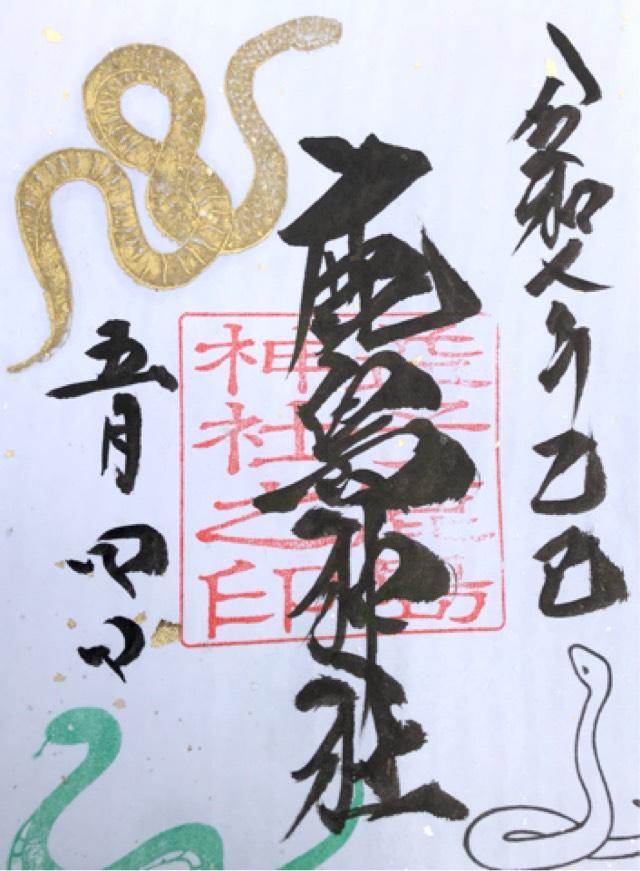 令和七年乙巳
鹿島神社
子鹿島
神社之印
五月四日